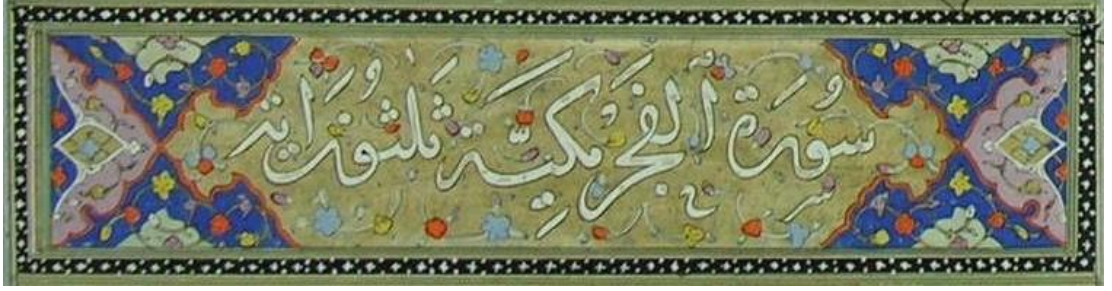 سورة الفجر مكية ثلثون اية